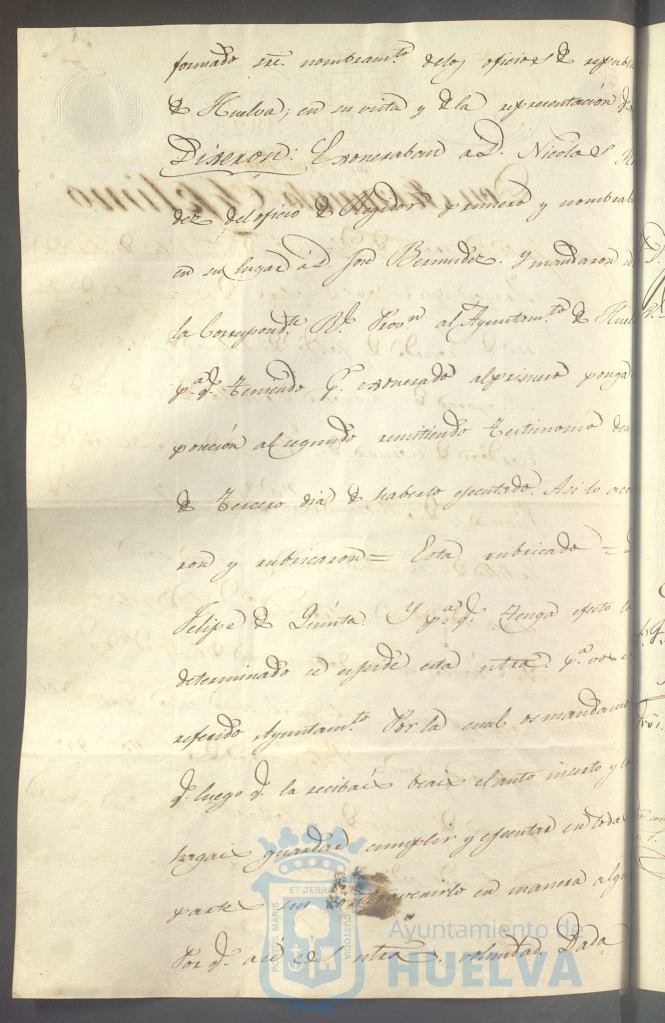 formado sre. nombramto. delos oficios de republi
de Huelva; en su vista y de la representación de
Dixeron: Exoneraban a D. Nicolas
dez del oficio de Regidor primero y nombraba
en su lugar á D. José Bermudez. Y mandaron
la Correspondte. Rl. Provn. al Ayuntamto. de Huel
pa. q. teniendo pr. exonerado al primero ponga
posesión al segundo remitiendo testimonio
de tercero dia de haberlo ejecutado. Asi lo aco
ron y rubricaron = Esta rubricado =
Felipe de Quinta. Y pa. q. tenga efecto lo
determinado se espide esta ntra. pa. vos el
referido Ayuntamto. Por la cual os mandamos
q. luego q. la recibais veais el auto inserto y lo
hagais guardar cumplir y ejecutar en todas
partes sin contravenirlo en manera algu
Por q. asi es ntra. voluntad. Dada
ET TERRAE
PORTUS MARIS
CUSTODIA
Ayuntamiento de
HUELVA